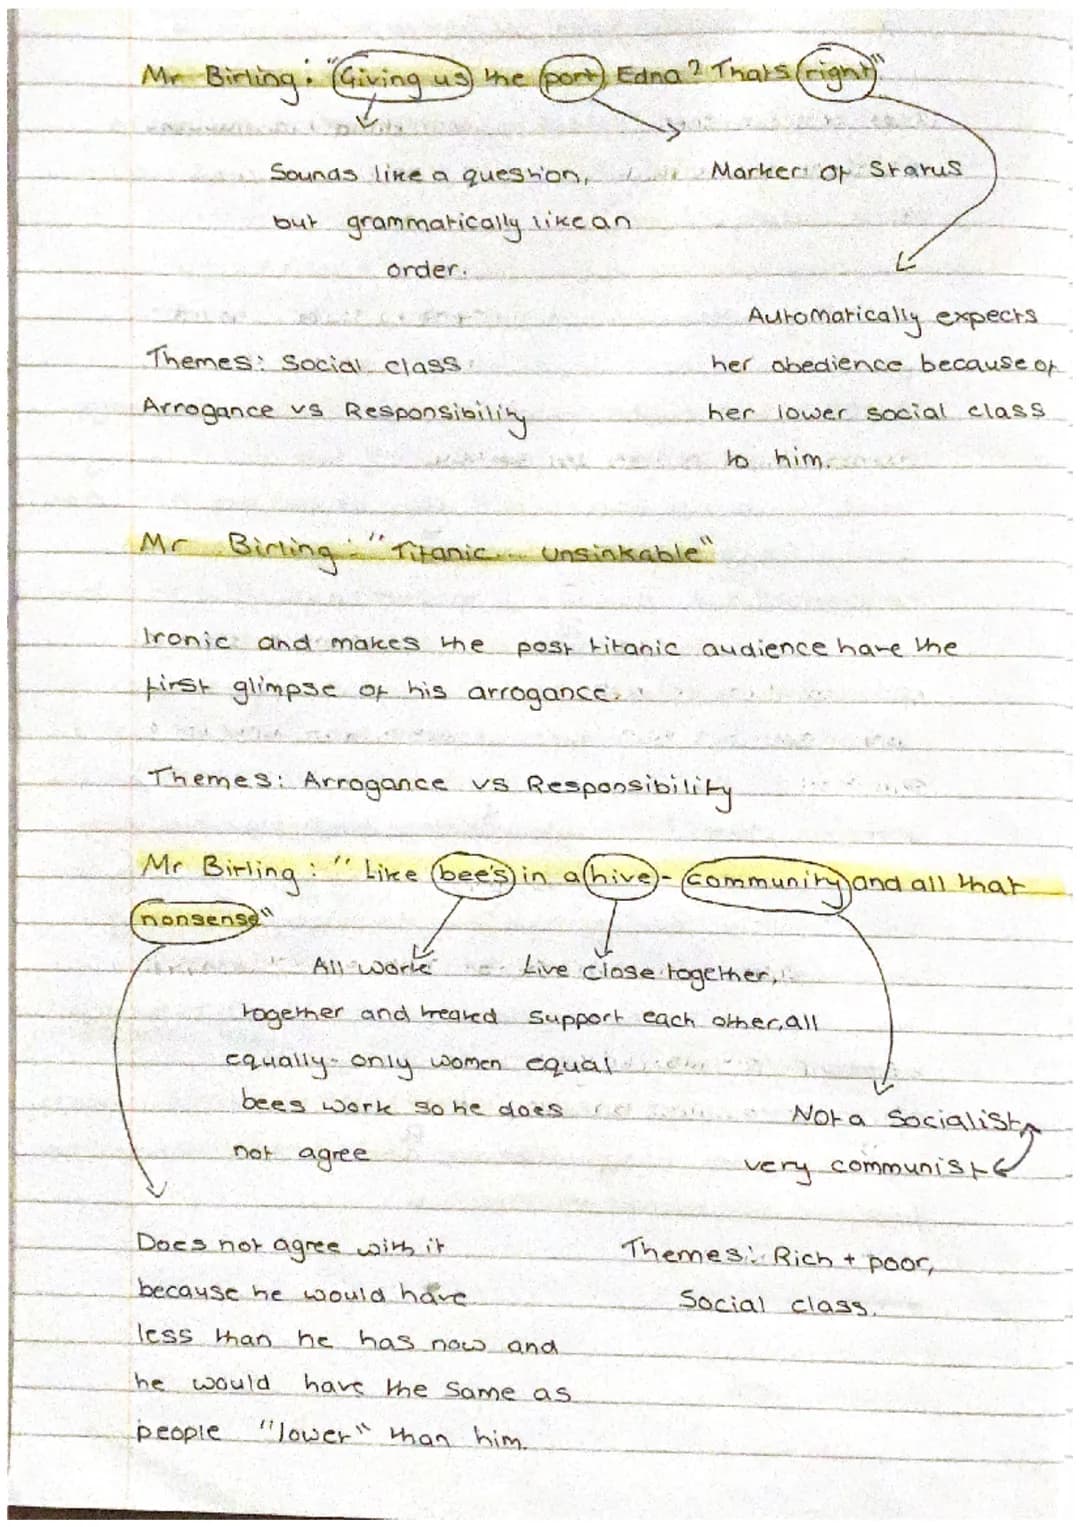 Mr Birling: "Giving us the port, Edna? Thats right".
Sounds like a question,
but grammatically like an
order.
Marker of Status
Automatically expects
her obedience because of
her lower social class
to him.
Themes: Social class
Arrogance vs Responsibility
Mr Birling: "Titanic... unsinkable"
Ironic and makes the post titanic audience have the
first glimpse of his arrogance.
Themes: Arrogance vs Responsibility
Mr Birling: "Like bee's in a hive - community and all that
nonsense"
All work
together and treated
equally - only women
bees work so he does
not agree
Live close together,
support each other, all
equal
Not a Socialist
very communist
Does not agree with it
because he would have
less than he has now and
he would have the same as
people "lower" than him.
Themes: Rich + poor,
Social class.